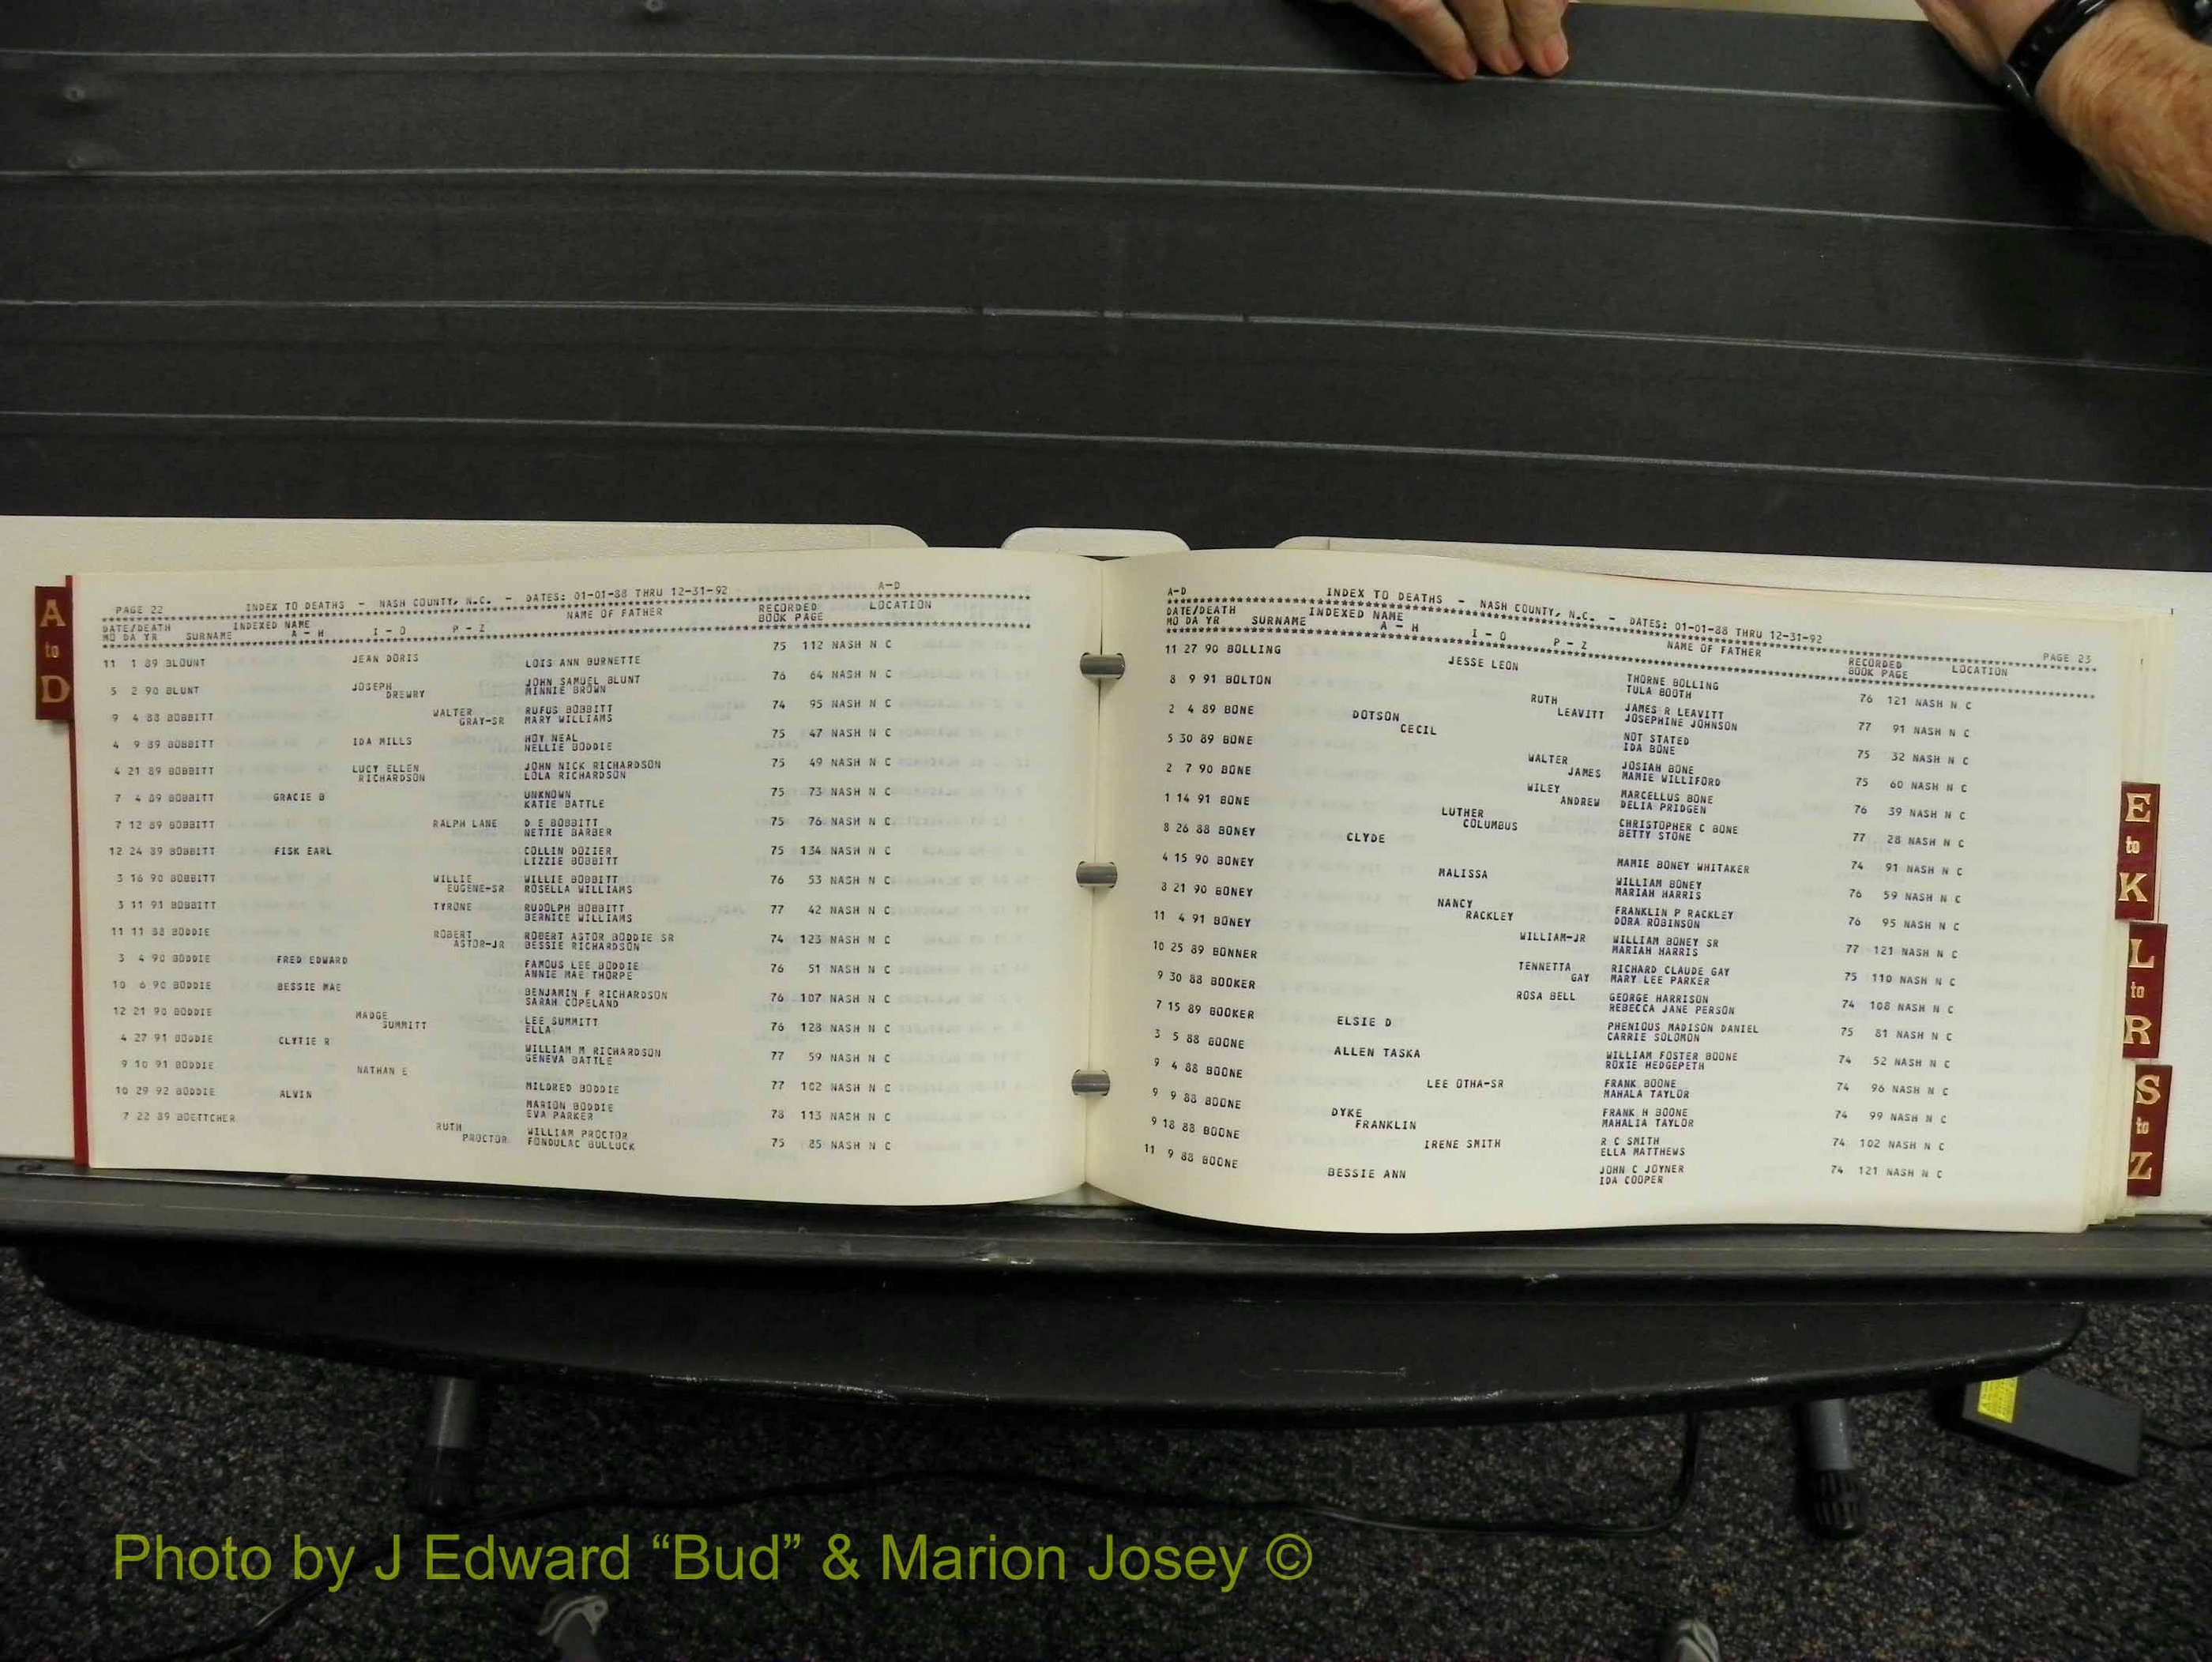 A
to
D
PAGE 22 INDEX TO DEATHS - NASH COUNTY, N.C. - DATES: 01-01-88 THRU 12-31-92 A-D
DATE/DEATH INDEXED NAME NAME OF FATHER RECORDED LOCATION
MO DA YR SURNAME A - H I - O P - Z BOOK PAGE
11 1 89 BLOUNT JEAN DORIS LOIS ANN BURNETTE 75 112 NASH N C
5 2 90 BLUNT JOSEPH JOHN SAMUEL BLUNT 76 64 NASH N C
DREWRY MINNIE BROWN
9 4 88 BOBBITT WALTER RUFUS BOBBITT 74 95 NASH N C
GRAY-SR MARY WILLIAMS
4 9 89 BOBBITT IDA MILLS HOY NEAL 75 47 NASH N C
NELLIE BODDIE
4 21 89 BOBBITT LUCY ELLEN JOHN NICK RICHARDSON 75 49 NASH N C
RICHARDSON LOLA RICHARDSON
7 4 89 BOBBITT GRACIE B UNKNOWN 75 73 NASH N C
KATIE BATTLE
7 12 89 BOBBITT RALPH LANE D E BOBBITT 75 76 NASH N C
NETTIE BARBER
12 24 89 BOBBITT FISK EARL COLLIN DOZIER 75 134 NASH N C
LIZZIE BOBBITT
3 16 90 BOBBITT WILLIE WILLIE BOBBITT 76 53 NASH N C
EUGENE-SR ROSELLA WILLIAMS
3 11 91 BOBBITT TYRONE RUDOLPH BOBBITT 77 42 NASH N C
BERNICE WILLIAMS
11 11 88 BODDIE ROBERT ROBERT ASTOR BODDIE SR 74 123 NASH N C
ASTOR-JR BESSIE RICHARDSON
3 4 90 BODDIE FRED EDWARD FAMOUS LEE BODDIE 76 51 NASH N C
ANNIE MAE THORPE
10 6 90 BODDIE BESSIE MAE BENJAMIN F RICHARDSON 76 107 NASH N C
SARAH COPELAND
12 21 90 BODDIE MADGE LEE SUMMITT 76 128 NASH N C
SUMMITT ELLA
4 27 91 BODDIE CLYTIE R WILLIAM M RICHARDSON 77 59 NASH N C
GENEVA BATTLE
9 10 91 BODDIE NATHAN E MILDRED BODDIE 77 102 NASH N C
10 29 92 BODDIE ALVIN MARION BODDIE 78 113 NASH N C
EVA PARKER
7 22 89 BOETTCHER RUTH WILLIAM PROCTOR 75 85 NASH N C
PROCTOR FONDULAC BULLUCK
A-D INDEX TO DEATHS - NASH COUNTY, N.C. - DATES: 01-01-88 THRU 12-31-92 PAGE 23
DATE/DEATH INDEXED NAME NAME OF FATHER RECORDED LOCATION
MO DA YR SURNAME A - H I - O P - Z BOOK PAGE
11 27 90 BOLLING JESSE LEON THORNE BOLLING 76 121 NASH N C
TULA BOOTH
8 9 91 BOLTON RUTH JAMES R LEAVITT 77 91 NASH N C
LEAVITT JOSEPHINE JOHNSON
2 4 89 BONE DOTSON NOT STATED 75 32 NASH N C
CECIL IDA BONE
5 30 89 BONE WALTER JOSIAH BONE 75 60 NASH N C
JAMES MAMIE WILLIFORD
2 7 90 BONE WILEY MARCELLUS BONE 76 39 NASH N C
ANDREW DELIA PRIDGEN
1 14 91 BONE LUTHER CHRISTOPHER C BONE 77 28 NASH N C
COLUMBUS BETTY STONE
8 26 88 BONEY CLYDE MAMIE BONEY WHITAKER 74 91 NASH N C
4 15 90 BONEY MALISSA WILLIAM BONEY 76 59 NASH N C
MARIAH HARRIS
8 21 90 BONEY NANCY FRANKLIN P RACKLEY 76 95 NASH N C
RACKLEY DORA ROBINSON
11 4 91 BONEY WILLIAM-JR WILLIAM BONEY SR 77 121 NASH N C
MARIAH HARRIS
10 25 89 BONNER TENNETTA RICHARD CLAUDE GAY 75 110 NASH N C
GAY MARY LEE PARKER
9 30 88 BOOKER ROSA BELL GEORGE HARRISON 74 108 NASH N C
REBECCA JANE PERSON
7 15 89 BOOKER ELSIE D PHENIOUS MADISON DANIEL 75 81 NASH N C
CARRIE SOLOMON
3 5 88 BOONE ALLEN TASKA WILLIAM FOSTER BOONE 74 52 NASH N C
ROXIE HEDGEPETH
9 4 88 BOONE LEE OTHA-SR FRANK BOONE 74 96 NASH N C
MAHALA TAYLOR
9 9 88 BOONE DYKE FRANK H BOONE 74 99 NASH N C
FRANKLIN MAHALIA TAYLOR
9 18 88 BOONE IRENE SMITH R C SMITH 74 102 NASH N C
ELLA MATTHEWS
11 9 88 BOONE BESSIE ANN JOHN C JOYNER 74 121 NASH N C
IDA COOPER
E
to
K
L
to
R
S
to
Z
Photo by J Edward “Bud” & Marion Josey ©